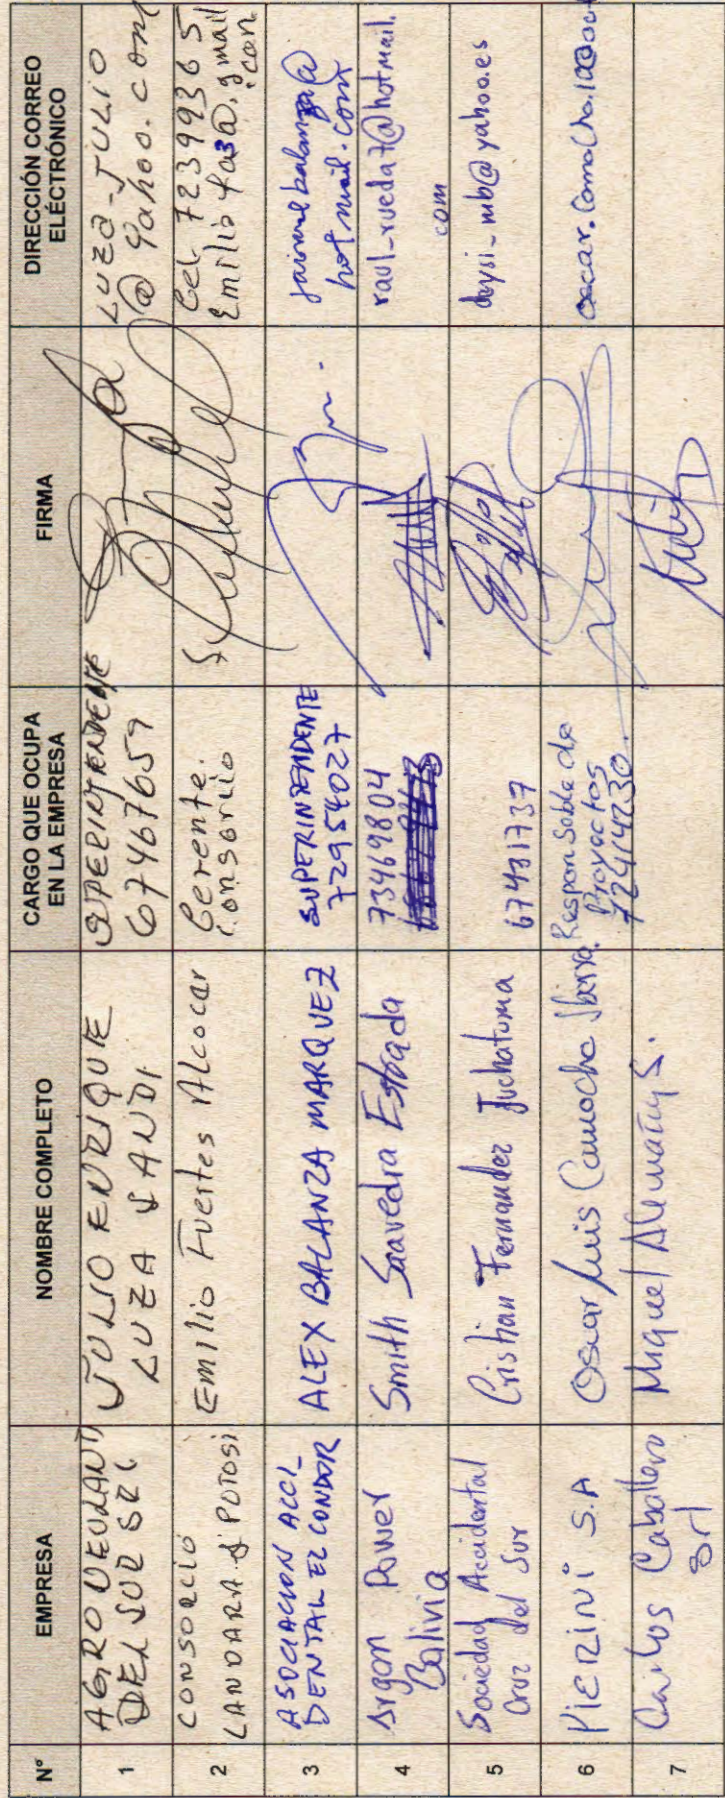 N° EMPRESA NOMBRE COMPLETO CARGO QUE OCUPA EN LA EMPRESA FIRMA DIRECCIÓN CORREO ELÉCTRÓNICO
1
DEL SUR SRL
JULIO ENRIQUE
LUZA SANDI
SUPERINTENDENTE
67467659
LUZA-JULIO
@ Yahoo.com
2
CONSORCIO
LANDARA POTOSI
Emilio Fuertes Alcocar
Gerente.
Consorcio
Cel. 72399365
3
ASOCIACION ACCI_
DENTAL EL CONDOR
ALEX BALANZA MARQUEZ
SUPERINTENDENTE
72954027
jaimebalanza@
hotmail.com
4
Argon Power
Bolivia
Smith Saavedra Estrada
73469804
raul_rueda7@hotmail.
com
5
Sociedad Accidental
Cruz del Sur
Cristian Fernandez
67431737
deysi_mb@yahoo.es
6
PIERINI S.A
Oscar Luis Camacho Ibarra
Responsable de
Proyectos
72414230.
7
Carlos Caballero
Srl
Miguel Alemán S.